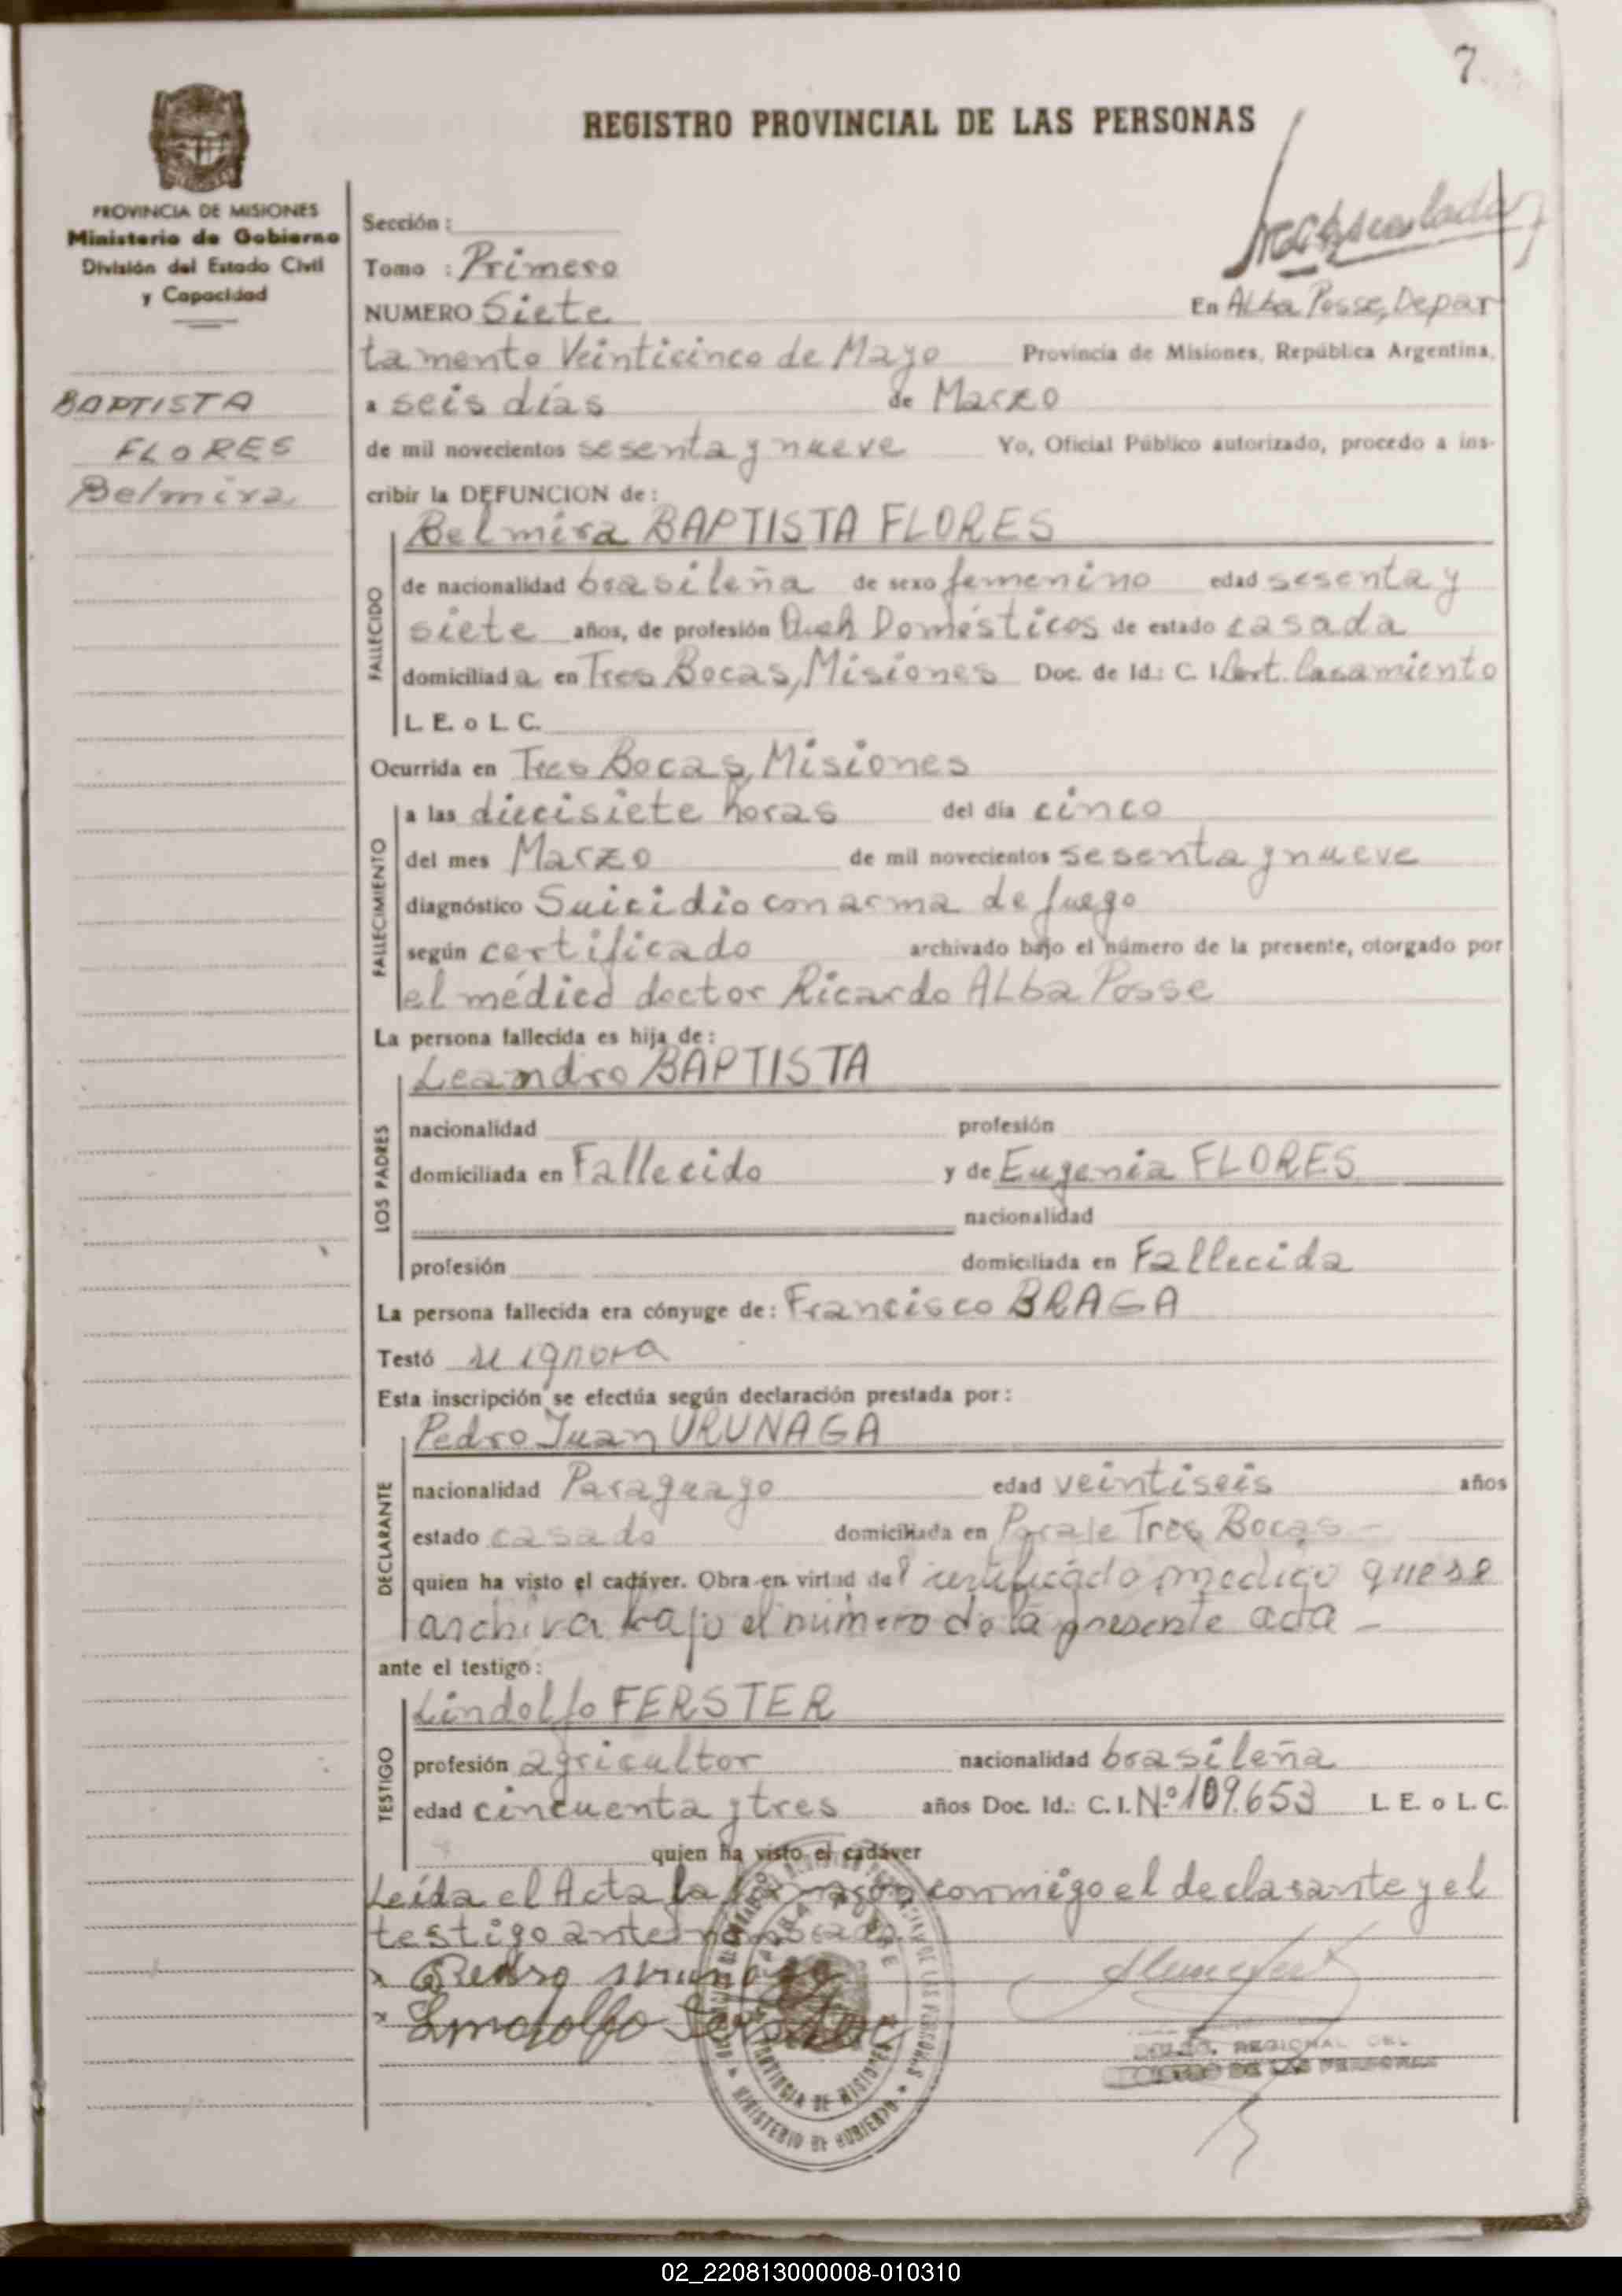 7
REGISTRO PROVINCIAL DE LAS PERSONAS
PROVINCIA DE MISIONES
Ministerio de Gobierno
División del Estado Civil
y Capacidad
BAPTISTA
FLORES
Belmira
Sección :
Tomo : Primero
NUMERO Siete En Alba Posse, Depar
tamento Veinticinco de Mayo Provincia de Misiones, República Argentina,
a seis días de Marzo
de mil novecientos sesenta y nueve Yo, Oficial Público autorizado, procedo a ins-
cribir la DEFUNCION de :
Belmira BAPTISTA FLORES
FALLECIDO
de nacionalidad brasileña de sexo femenino edad sesenta y
siete años, de profesión Domésticos de estado casada
domiciliada en Tres Bocas, Misiones Doc. de Id.: C. I. Cert. Casamiento
L. E. o L. C.
Ocurrida en Tres Bocas, Misiones
FALLECIMIENTO
a las diecisiete horas del día cinco
del mes Marzo de mil novecientos sesenta y nueve
diagnóstico Suicidio con arma de fuego
según certificado archivado bajo el número de la presente, otorgado por
el médico doctor Ricardo Alba Posse
La persona fallecida es hija de :
Leandro BAPTISTA
LOS PADRES
nacionalidad profesión
domiciliada en Fallecido y de Eugenia FLORES
nacionalidad
profesión domiciliada en Fallecida
La persona fallecida era cónyuge de : Francisco BRAGA
Testó se ignora
Esta inscripción se efectúa según declaración prestada por :
Pedro Juan URUNAGA
DECLARANTE
nacionalidad Paraguayo edad veintiseis años
estado casado domiciliada en Paraje Tres Bocas -
quien ha visto el cadáver. Obra en virtud del certificado medico que se
archiva bajo el número de la presente acta -
ante el testigo :
Lindolfo FERSTER
TESTIGO
profesión agricultor nacionalidad brasileña
edad cincuenta y tres años Doc. Id.: C. I. Nº 109.653 L. E. o L. C.
quien ha visto el cadáver
Leída el Acta la conmigo el declarante y el
testigo antes
x Pedro
x Lindolfo
REGIONAL DEL
DE LAS PERSONAS
PROVINCIA DE MISIONES
MINISTERIO DE GOBIERNO
02_220813000008-010310